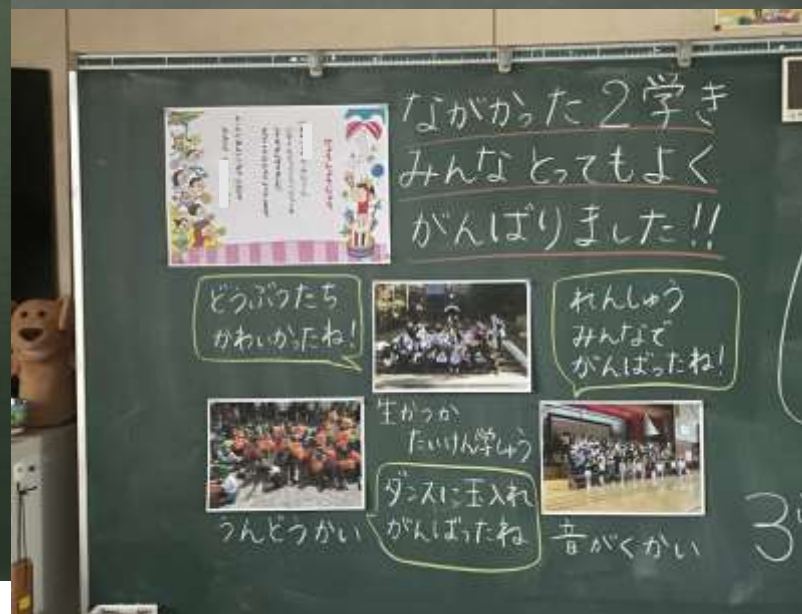 ながかった2学き
みんなとってもよく
がんばりました!!
どうぶつたち
かわいかったね!
れんしゅう
みんなで
がんばったね!
生かつか
たいけん学しゅう
ダンスに玉入れ
がんばったね
うんどうかい
音がくかい
3